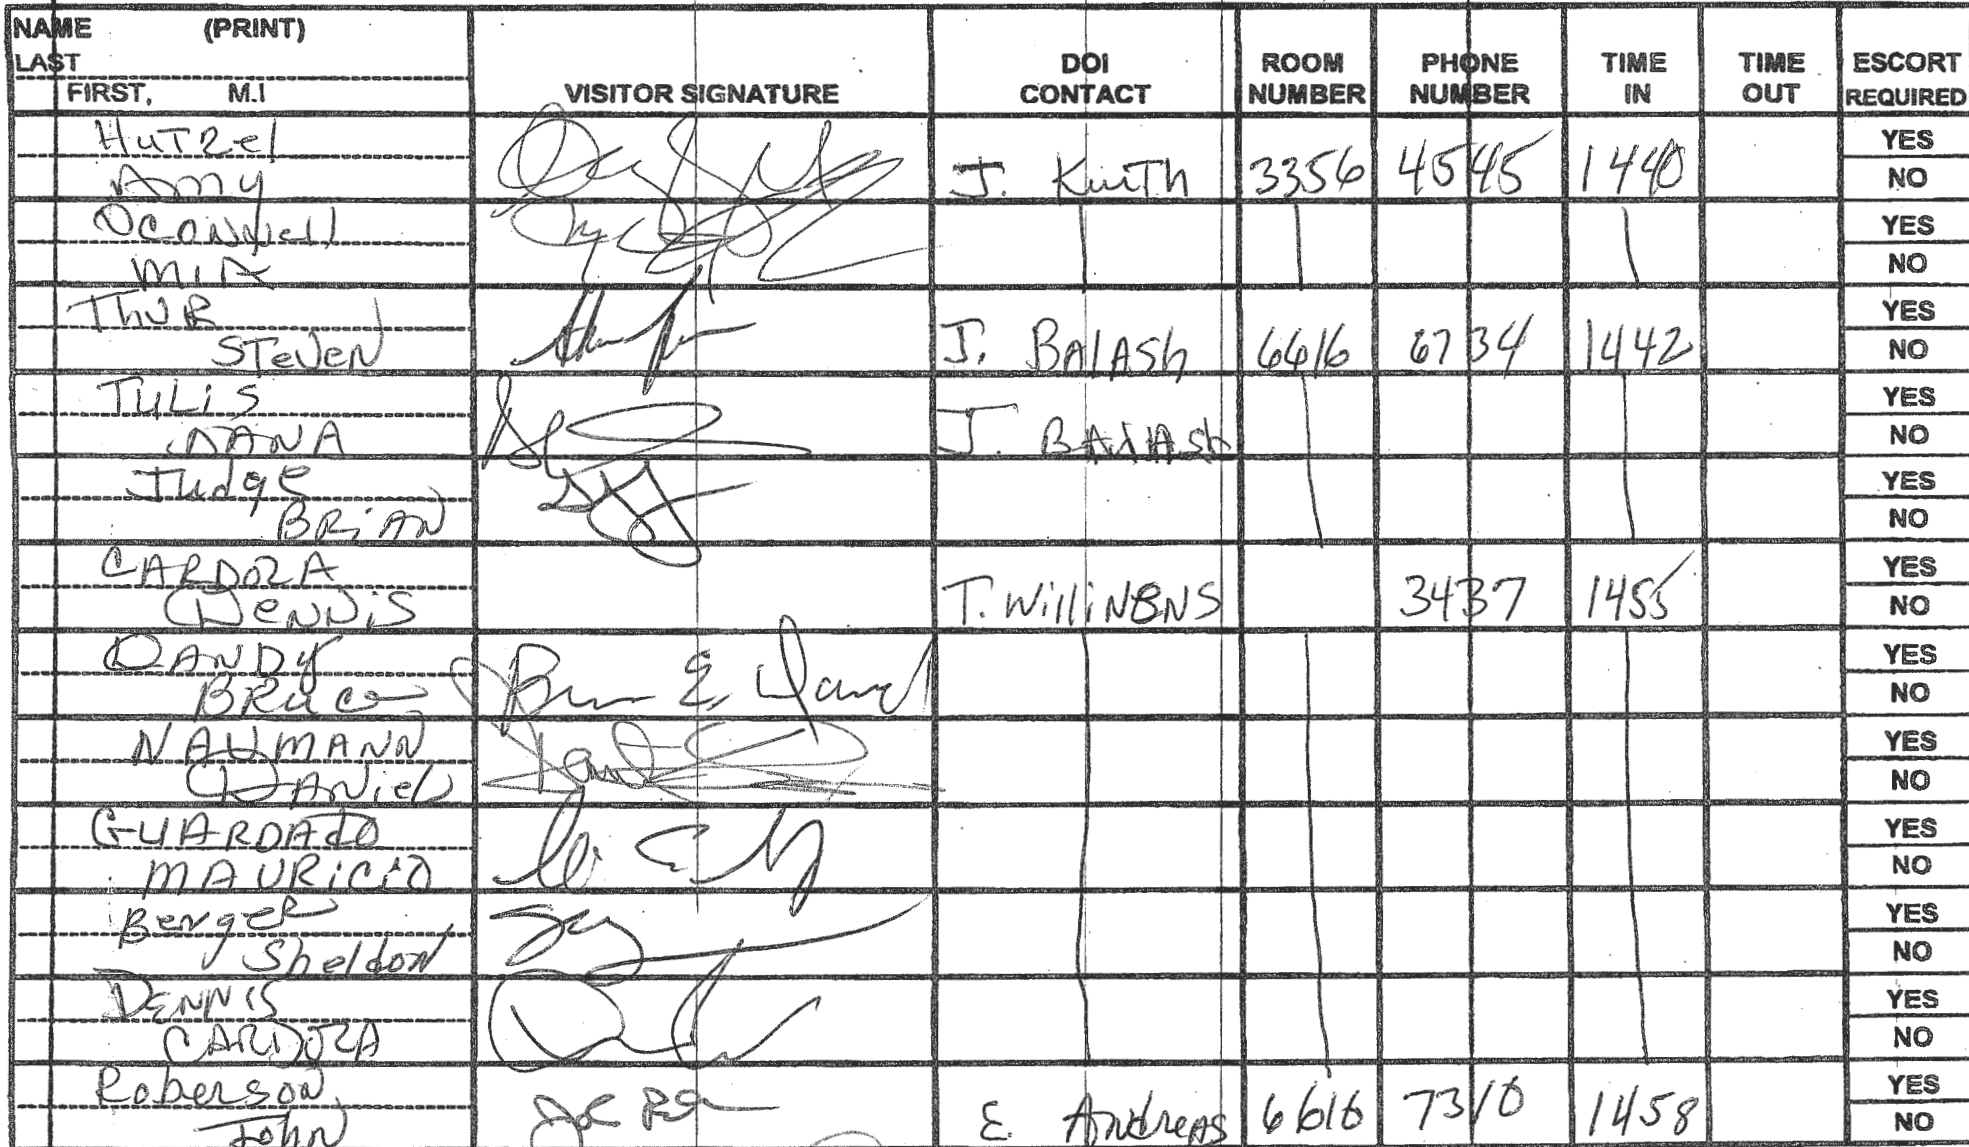 NAME (PRINT)
LAST
FIRST, M.I
VISITOR SIGNATURE
DOI
CONTACT
ROOM
NUMBER
PHONE
NUMBER
TIME
IN
TIME
OUT
ESCORT
REQUIRED
HuTzel
Amy
J. KuiTh 3356 4545 1440
YES
NO
OCONNell
MIA
YES
NO
ThUR
STeveN
J. BAlASh 6616 6734 1442
YES
NO
TULiS
DANA
J. BAlASh
YES
NO
Judge
BRiAN
YES
NO
CARDOZA
DeNNiS
T. WilliNENS 3437 1455
YES
NO
DANDY
BRuce
Bruce E. Dandy
YES
NO
NAUMANN
DANiel
YES
NO
GUARDAdO
MAURiCiO
YES
NO
Berger
Sheldon
YES
NO
DENNIS
CARDOZA
YES
NO
RoberSON
JohN
E. AndreAS 6616 7310 1458
YES
NO